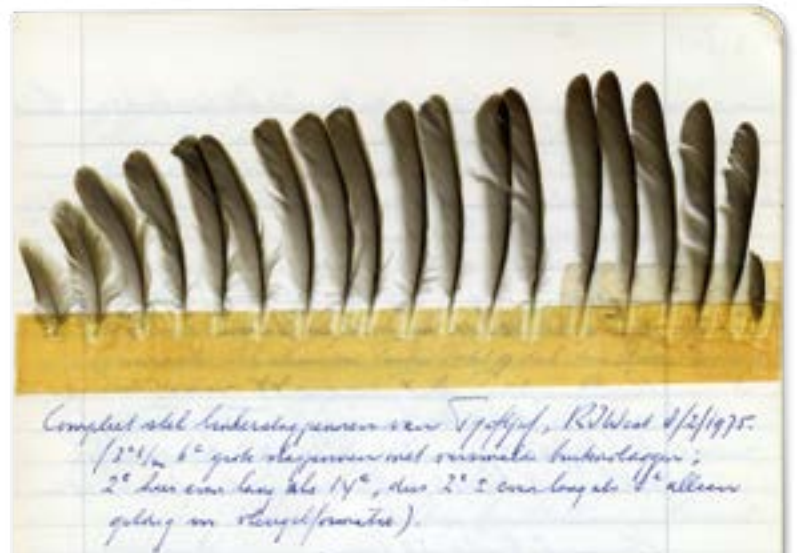 Compleet stel linkerslagpennen van Tjiftjaf, RIJWest 8/2/1975.
(3e t/m 6e grote slagpennen met versmalde buitenvlaggen;
2e hier even lang als 14e, dus 2e ± even lang als 8e alleen
geldig in vleugelformatie).